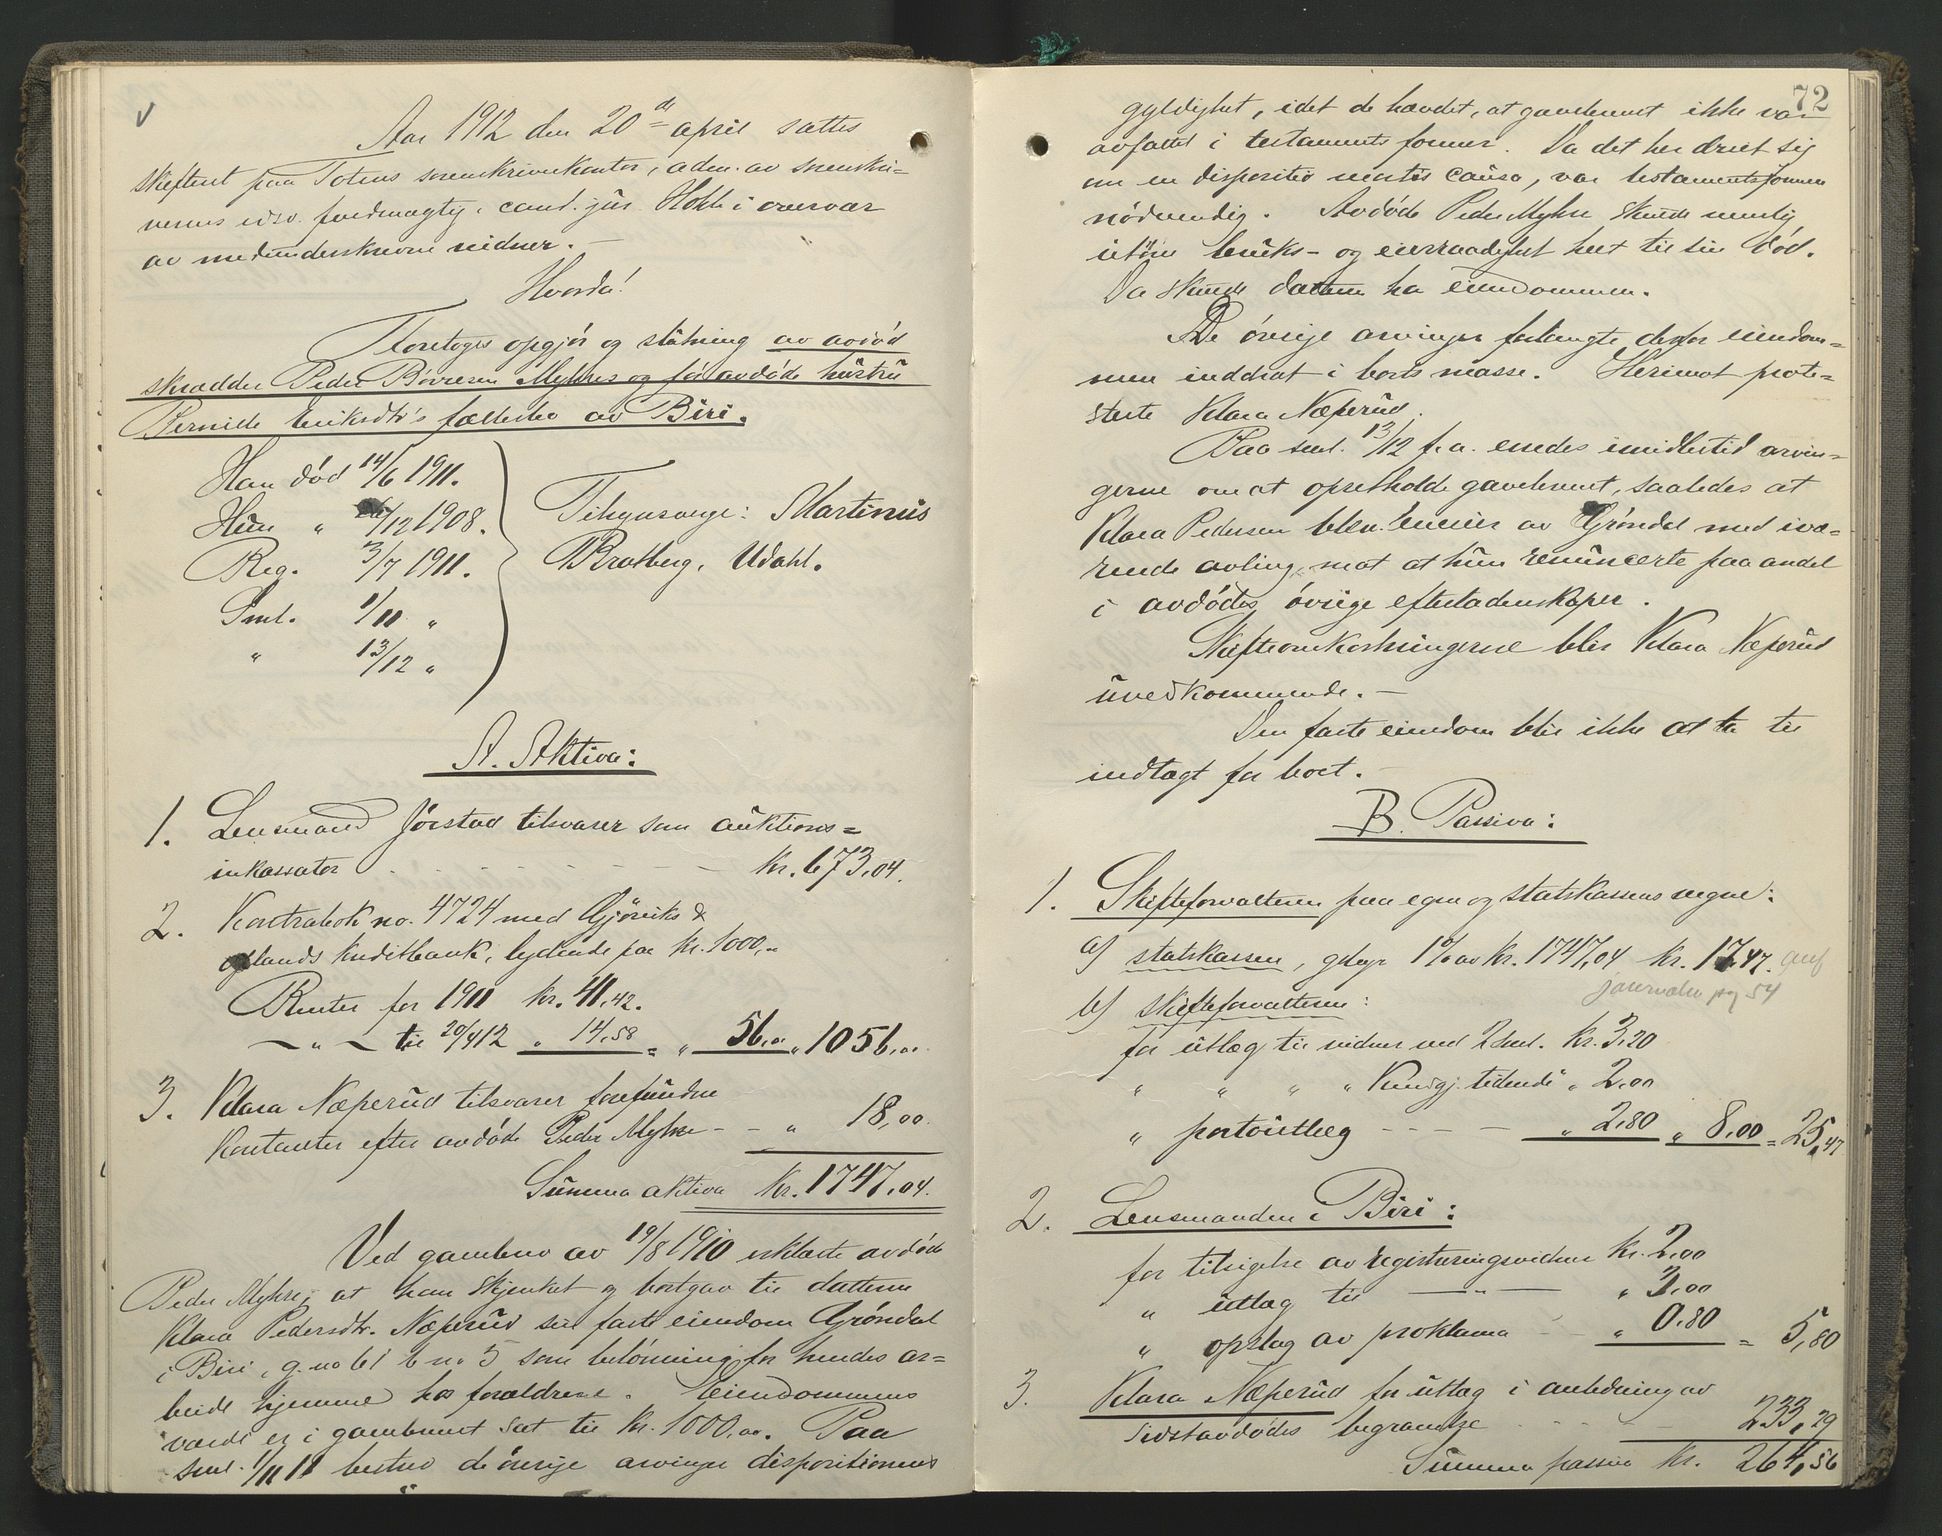 Aar 1912 den 20de april sattes
skifteret paa Totens sorenskriverkontor, adm. av sorenskri-
verens edsv. fuldmægtig, cand. jur. Holst i overvær
av medunderskrevne vidner. –
Hvorda!
Foretoges opgjør og slutning av avdød
skrædder Peder Børresen Myhres og før avdøde hustru
Pernille Eriksdtr's fællesbo av Biri.
Han død 14/6 1911.
Hun " /12 1908.
Reg. 3/7 1911.
Sml. 1/11 "
" 13/12 "
Tilsynsverge: Martinus
Bratberg, Udahl.
A. Aktiva:
1. Lensmand Jørstad tilsvarer som auktions=
inkassator kr. 673,04.
2. Kontrabok no. 4724 med Gjøviks &
oplands kreditbank, lydende paa kr. 1000,-
Renter for 1911 kr. 41,42.
— " — til 20/4 12 " 14,58 = " 56,00 " 1056,00.
3. Klara Næperud tilsvarer forefundne
kontanter efter avdøde Peder Myhre - - " 18,00.
Summa aktiva kr. 1747,04.
Ved gavebrev av 19/8 1910 erklærte avdøde
Peder Myhre, at han skjenket og bortgav til datteren
Klara Pedersdtr. Næperud sin faste eiendom Grøndal
i Biri, g. no 61 b no 5 som belønning for hendes ar=
beide hjemme hos forældrene. Eiendommens
værdi er i gavebrevet sat til kr. 1000,00. Paa
sml. 1/11 11 bestred de øvrige arvinger dispositionens
72
gyldighet, idet de hævdet, at gavebrevet ikke var
avfattet i testaments former. Da det her dreiet sig
om en dispositio mortis causa, var testamentsformen
nødvendig. Avdøde Peder Myhre skulde nemlig
utøve bruks- og eierraadighet helt til sin død.
Da skulde datteren ha eiendommen.
De øvrige arvinger forlangte derfor eiendom=
men inddrat i boets masse. Herimot prote=
sterte Klara Næperud.
Paa sml. 13/12 f. a. enedes imidlertid arvin=
gerne om at opretholde gavebrevet, saaledes at
Klara Pedersen blev eneeier av Grøndal med ivæ=
rende avling, mot at hun renuncerte paa andel
i avdødes øvrige efterladenskaper.
Skifteomkostningerne blir Klara Næperud
uvedkommende. –
Den faste eiendom blir ikke at ta til
indtægt for boet. –
B. Passiva:
1. Skifteforvalteren paa egne og statskassens vegne:
a) statskassen, gebyr 1% av kr. 1747,04 kr. 17,47. anf
journalen pag 54
b) skifteforvalteren:
for utlæg til vidner ved 2 sml. kr. 3,20
" " " " Kundgj. tidende " 2,00
" portoutlæg - - - - " 2,80 " 8,00 = 25,47
2. Lensmanden i Biri:
for tilsigelse av registreringsvidner kr. 2,00
" utlæg til — " — " 3,00
" opslag av proklama - - " 0,80 = 5,80
3. Klara Næperud for utlæg i anledning av
sidstavdødes begravelse 233,29
Summa passiva kr. 264,56